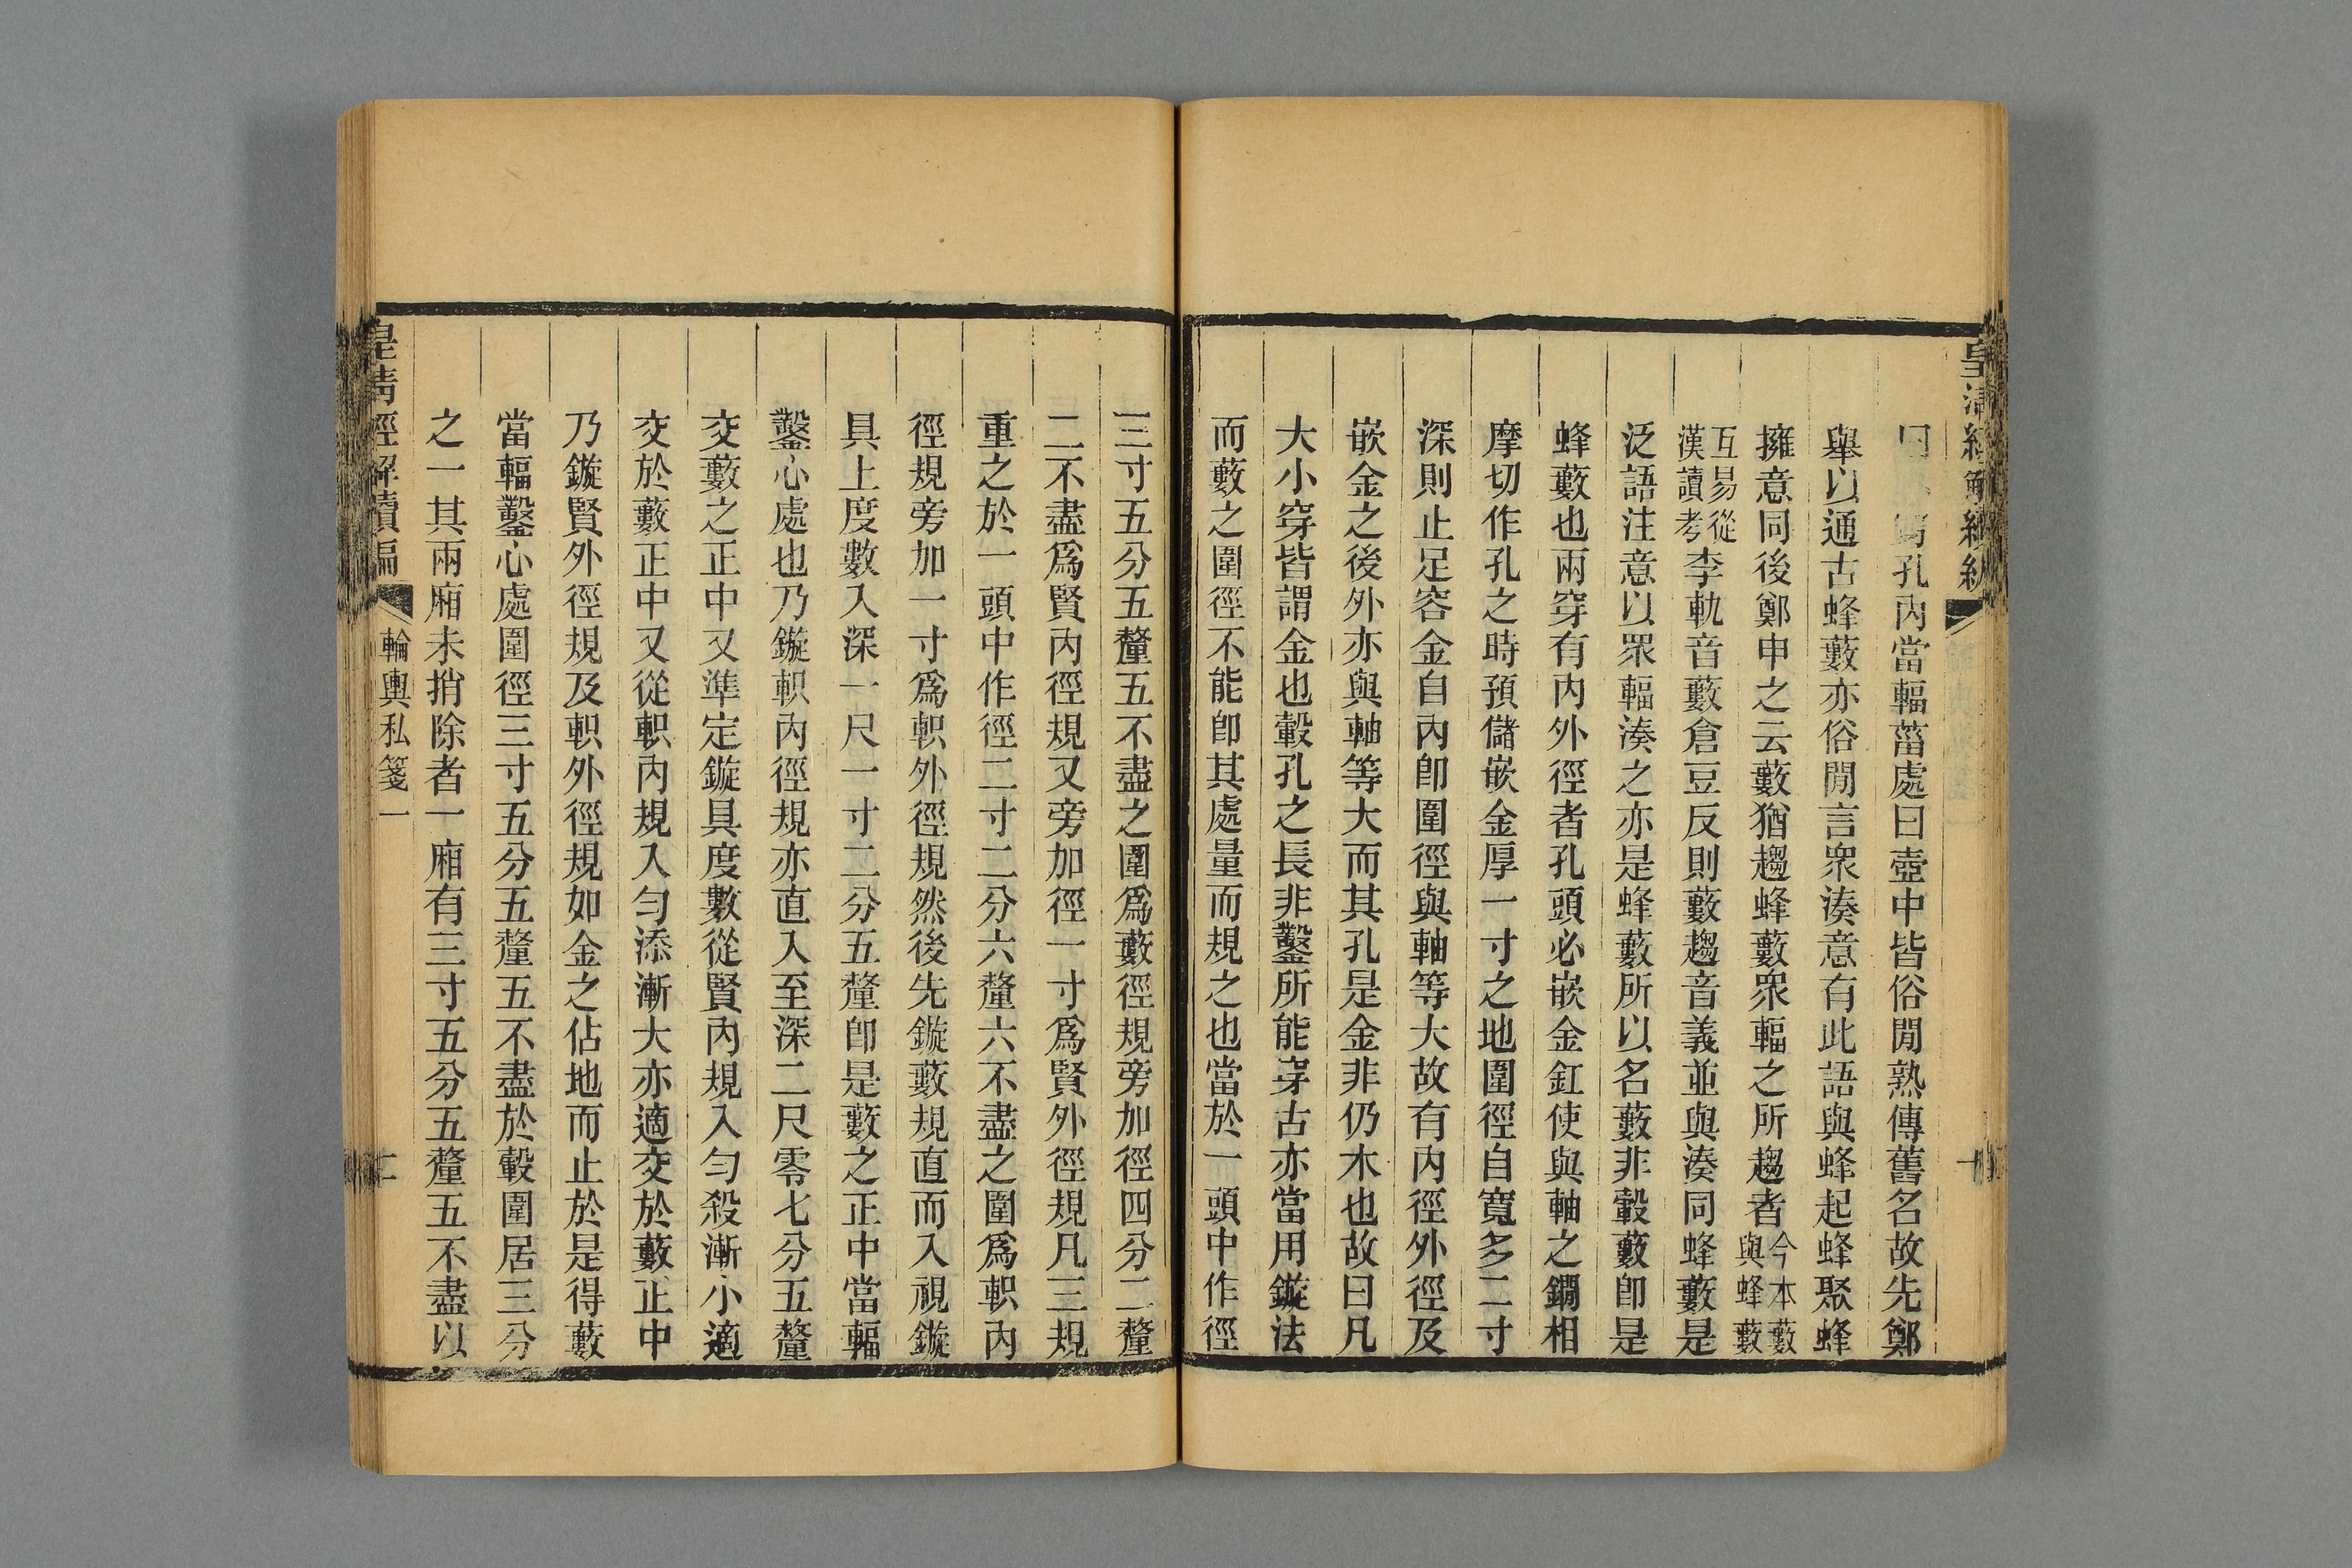 皇清經解續編
孔內當輻菑處曰壺中皆俗閒熟傳舊名故先鄭
舉以通古蜂藪亦俗閒言衆湊意有此語與蜂起蜂聚蜂
擁意同後鄭申之云藪猶趨蜂藪衆輻之所趨者今本藪與蜂藪
互易從漢讀考李軌音藪倉豆反則藪趨音義並與湊同蜂藪是
泛語注意以眾輻湊之亦是蜂藪所以名藪非轂藪卽是
蜂藪也兩穿有內外徑者孔頭必嵌金釭使與軸之鐧相
摩切作孔之時預儲嵌金厚一寸之地圍徑自寬多二寸
深則止足容金自內卽圍徑與軸等大故有內徑外徑及
嵌金之後外亦與軸等大而其孔是金非仍木也故曰凡
大小穿皆謂金也轂孔之長非鑿所能穿古亦當用鏇法
而藪之圍徑不能卽其處量而規之也當於一頭中作徑
三寸五分五釐五不盡之圍爲藪徑規旁加徑四分二釐
二不盡爲賢內徑規又旁加徑一寸爲賢外徑規凡三規
重之於一頭中作徑二寸二分六釐六不盡之圍爲軹內
徑規旁加一寸爲軹外徑規然後先鏇藪規直而入視鏇
具上度數入深一尺一寸二分五釐卽是藪之正中當輻
鑿心處也乃鏇軹內徑規亦直入至深二尺零七分五釐
交藪之正中又準定鏇具度數從賢內規入勻殺漸小適
交於藪正中又從軹內規入勻添漸大亦適交於藪正中
乃鏇賢外徑規及軹外徑規如金之佔地而止於是得藪
當輻鑿心處圍徑三寸五分五釐五不盡於轂圍居三分
之一其兩廂未捎除者一廂有三寸五分五釐五不盡以
皇清經解續編 輪輿私箋一